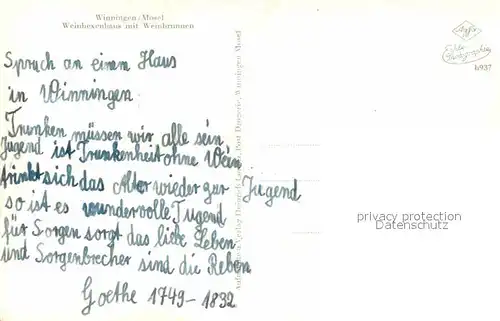 Winningen/Mosel
Weinhexenhaus mit Weinbrunnen
Spruch an einem Haus
in Winningen.
Trunken müssen wir alle sein
Jugend ist Trunkenheit ohne Wein
trinkt sich das Alter wieder zur Jugend
so ist es wundervolle Tugend
für Sorgen sorgt das liebe Leben
und Sorgenbrecher sind die Reben
Goethe 1749-1832
Agfa
Echte
Photographie
privacy protection
Datenschutz